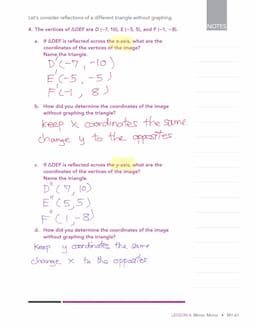 Let's consider reflections of a different triangle without graphing.
NOTES
4. The vertices of △DEF are D (−7, 10), E (−5, 5), and F (−1, −8).
a. If △DEF is reflected across the x-axis, what are the
coordinates of the vertices of the image?
Name the triangle.
D'(-7, -10)
E'(-5, -5)
F'(-1, 8)
b. How did you determine the coordinates of the image
without graphing the triangle?
keep x coordinates the same
change y to the opposites
c. If △DEF is reflected across the y-axis, what are the
coordinates of the vertices of the image?
Name the triangle.
D"(7, 10)
E"(5, 5)
F"(1, -8)
d. How did you determine the coordinates of the image
without graphing the triangle?
Keep y coordinates the same
change x to the opposites
LESSON 4: Mirror, Mirror • M1-61